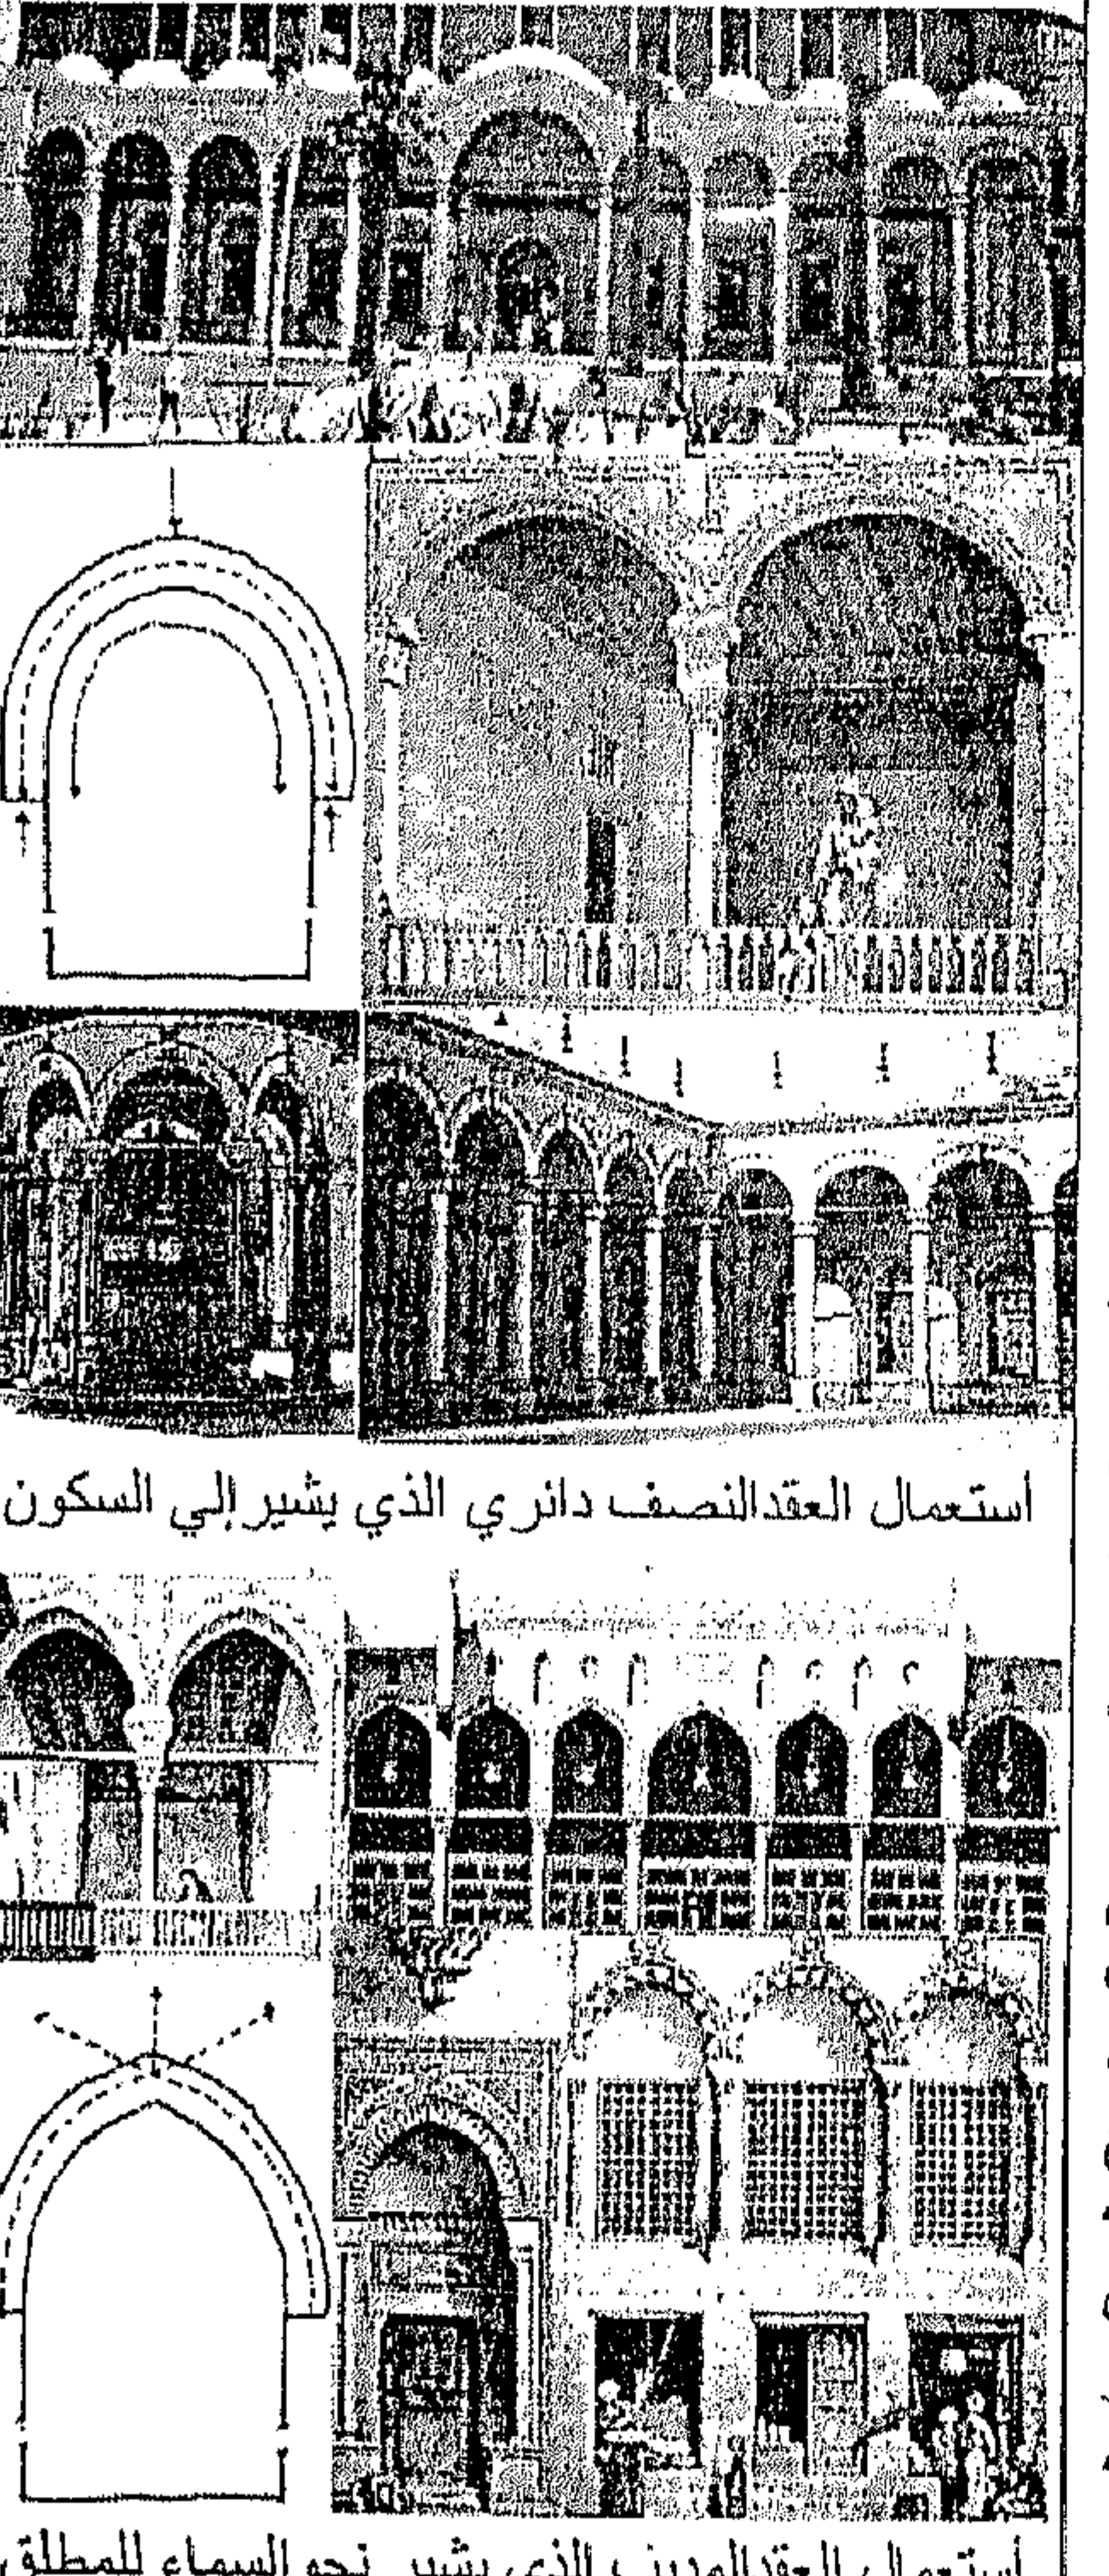 أستعمال العقدالنصف دائري الذي يشير إلي السكون
أستعمال العقدالمدبب الذي يشير نحو السماء للمطلق